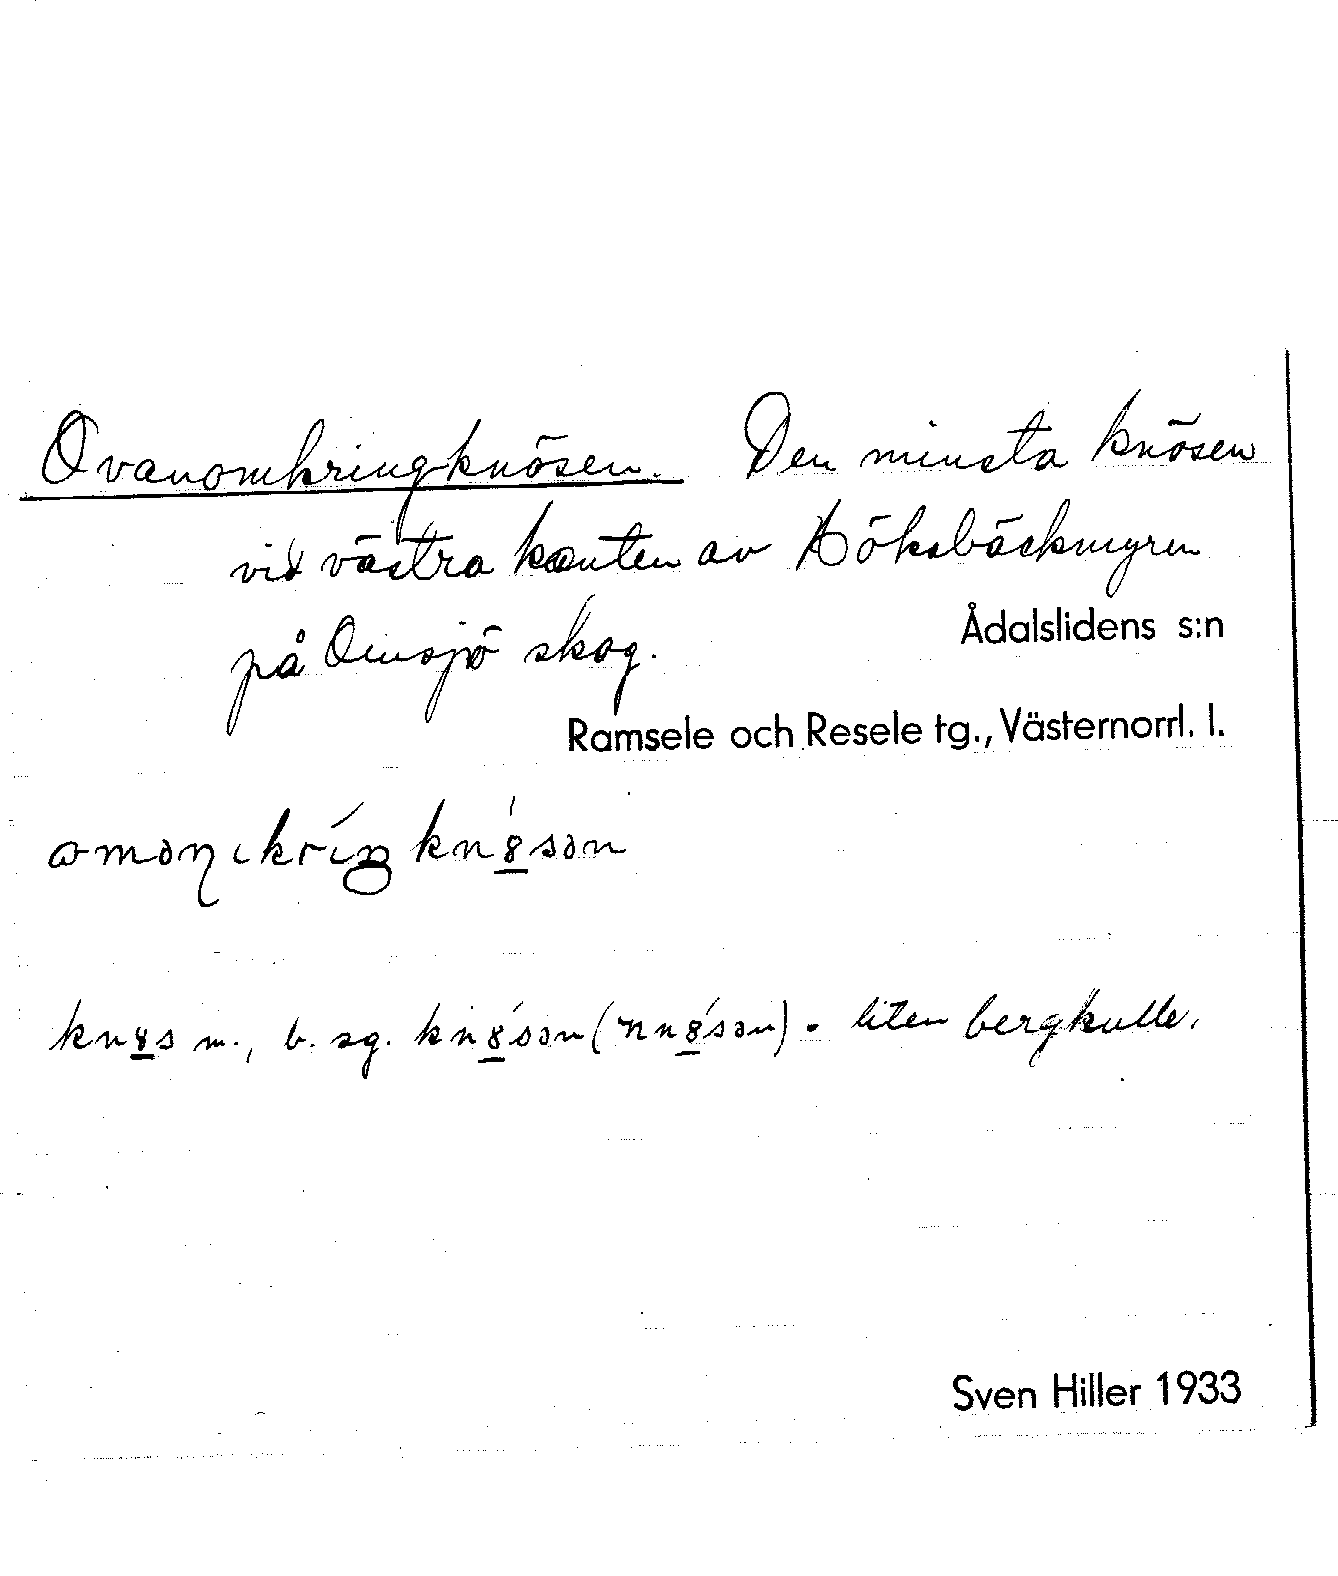 Ovanomkringknösen. Den minsta knösen
vid västra kanten av Höksbäckmyren
på Omsjö skog.
Ådalslidens s:n
Ramsele och Resele tg., Västernorrl. l.
m., b. sg. liten bergkulle.
Sven Hiller 1933